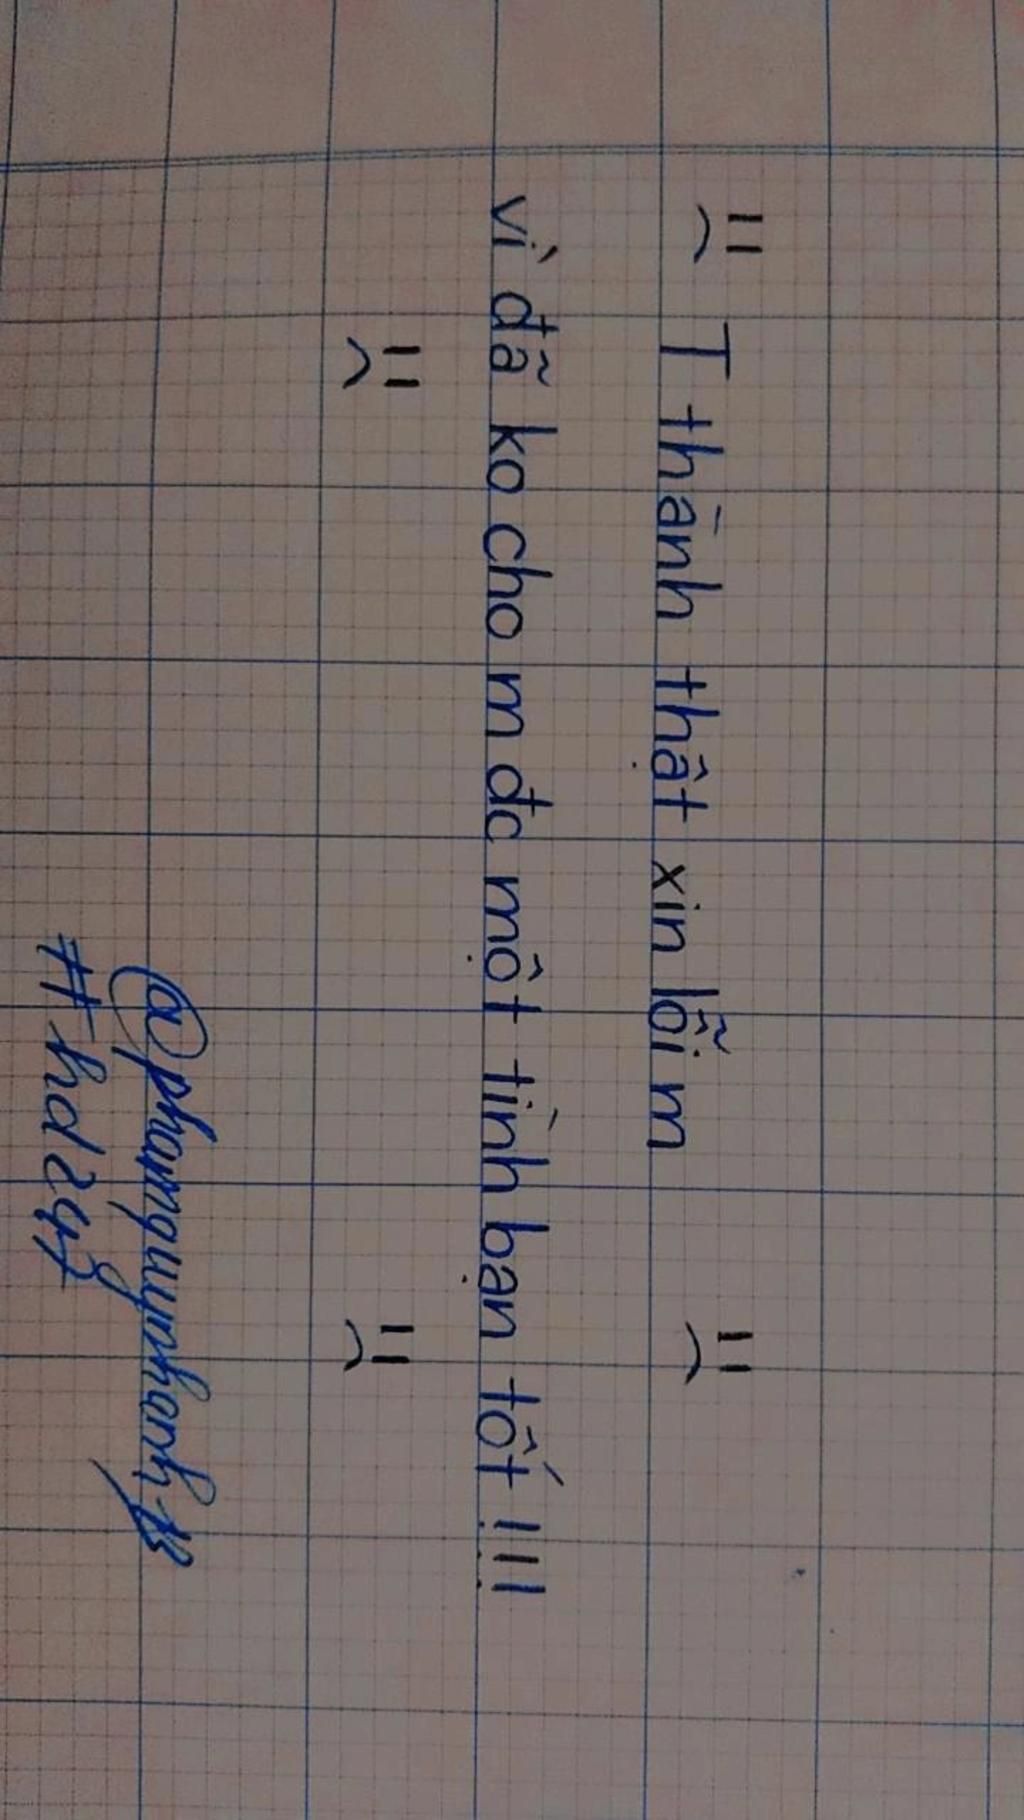 T thành thật xin lỗi m
vì đã ko cho m đc một tình bạn tốt !!!
@phamquynhanh.